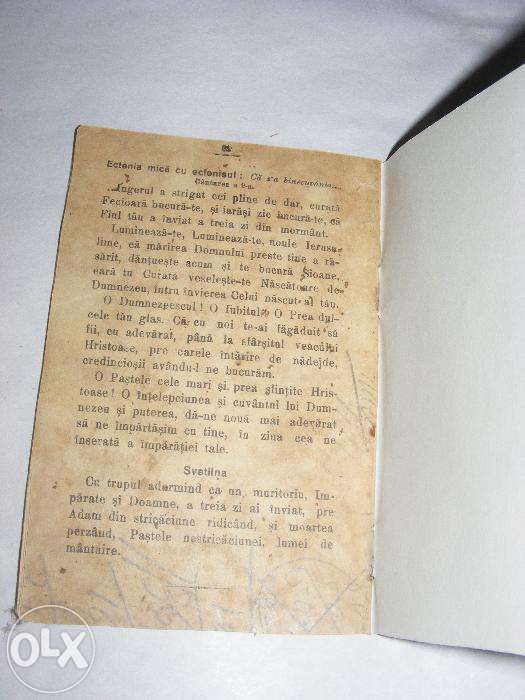 Ectenia mică cu ectonisul: Că s'a binecuvântat...
Cântarea a 9-a.
Îngerul a strigat cei pline de dar, curată
Fecioară bucură-te, și iarăși zic bucură-te, că
Fiul tău a înviat a treia zi din mormânt.
Luminează-te, Luminează-te, noule Ierusa-
lime, că mărirea Domnului preste tine a ră-
sărit, dănțuește acum și te bucură Sioane,
eară tu Curată veselește-te Născătoare de-
Dumnezeu, întru învierea Celui născut al tău.
O Dumnezeescul! O Iubitul! O Prea dul-
cele tău glas. Că cu noi te-ai făgăduit să
fii, cu adevărat, până la sfârșitul veacului
Hristoase, pre carele întărire de nădejde,
credincioșii avându-l ne bucurăm.
O Paștele cele mari și prea sfințite Hris-
toase! O înțelepciunea și cuvântul lui Dum-
nezeu și puterea, dă-ne nouă mai adevărat
să ne împărtășim cu tine, în ziua cea ne
înserată a împărăției tale.
Svetilna
Cu trupul adormind ca un muritoriu, Im-
părate și Doamne, a treia zi ai înviat, pre
Adam din stricăciune ridicând, și moartea
perzând, Paștele nestricăciunei, lumei de
mântuire.
OLX